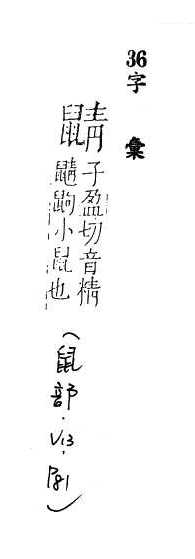 36
字 彙
鼱
子盈切音精
鼱鼩小鼠也
(鼠部.V13,P81)